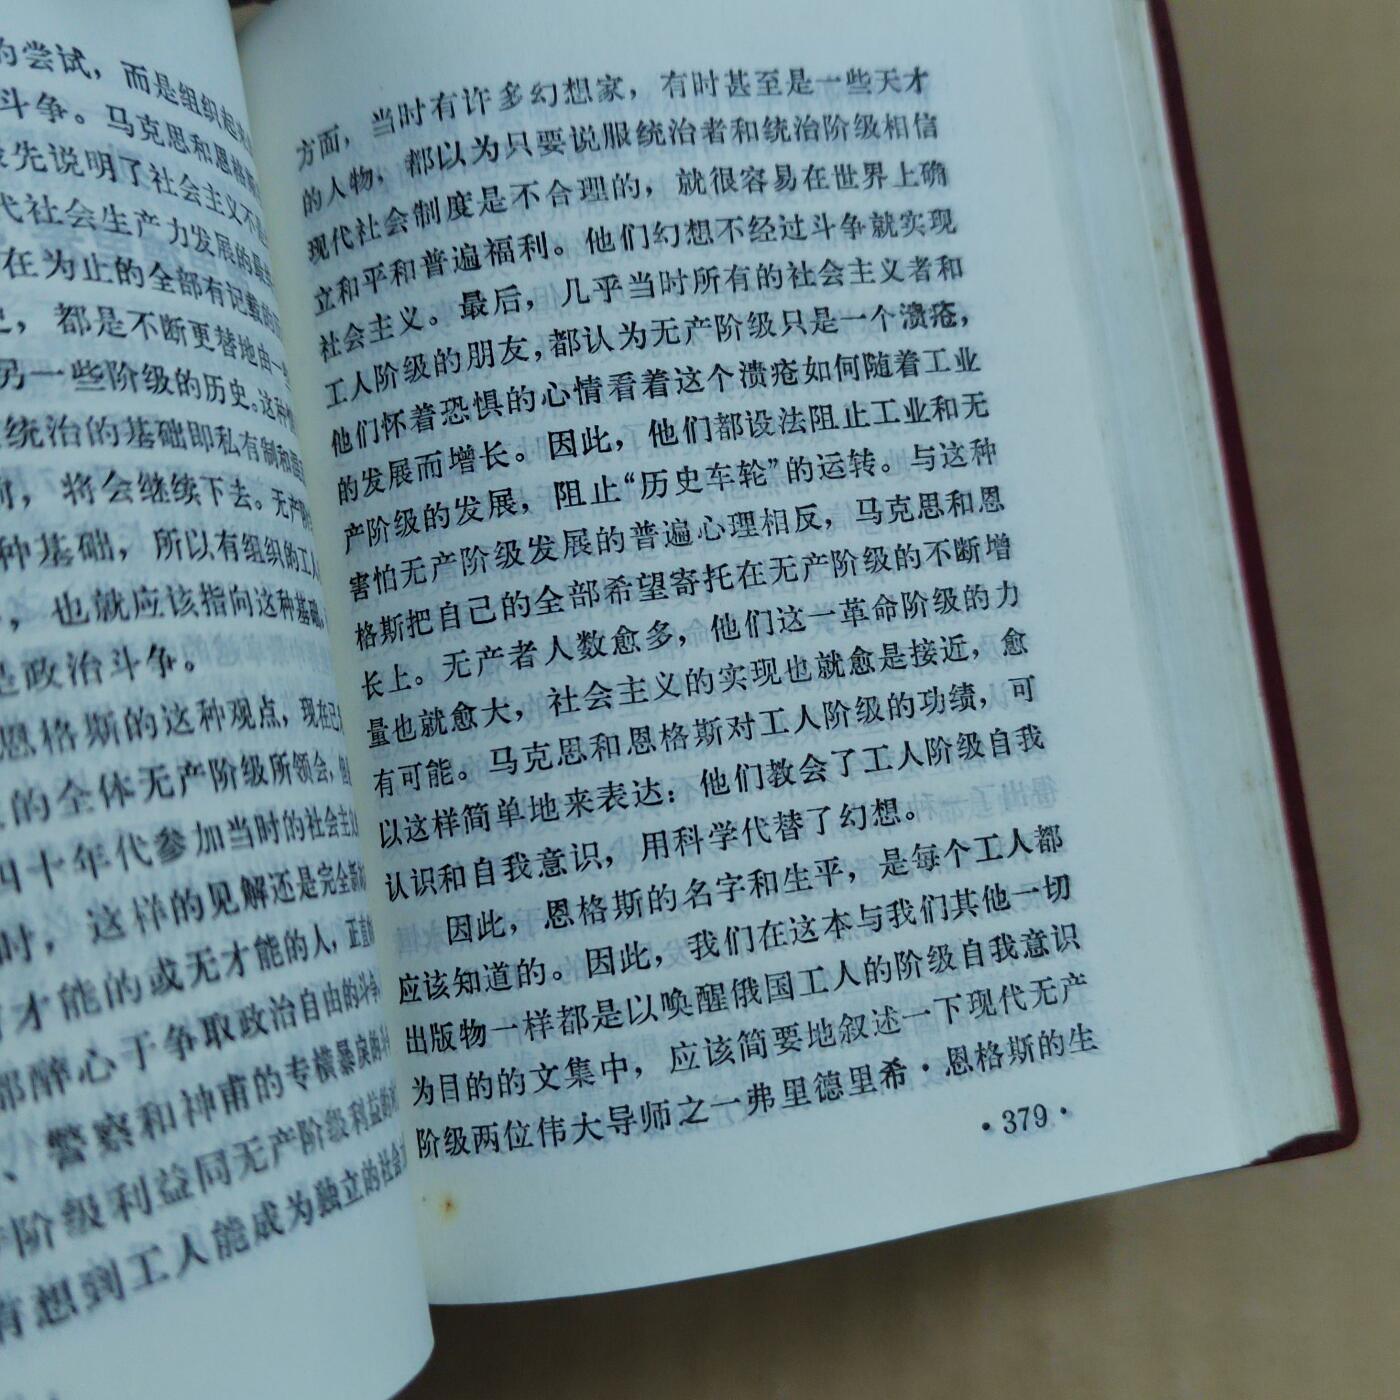 的尝试，而是组织起
斗争。马克思和恩格斯
先说明了社会主义不是
代社会生产力发展的最
在为止的全部有记载的
，都是不断更替地由一
另一些阶级的历史。这种
统治的基础即私有制和
，将会继续下去。无产阶
种基础，所以有组织的工人
，也就应该指向这种基础。
是政治斗争。
恩格斯的这种观点，现在已
的全体无产阶级所领会，但
四十年代参加当时的社会主
时，这样的见解还是完全新
有才能的或无才能的人，正直
都醉心于争取政治自由的斗争
、警察和神甫的专横暴戾的
阶级利益同无产阶级利益的
有想到工人能成为独立的社会
方面，当时有许多幻想家，有时甚至是一些天才
的人物，都以为只要说服统治者和统治阶级相信
现代社会制度是不合理的，就很容易在世界上确
立和平和普遍福利。他们幻想不经过斗争就实现
社会主义。最后，几乎当时所有的社会主义者和
工人阶级的朋友，都认为无产阶级只是一个溃疮，
他们怀着恐惧的心情看着这个溃疮如何随着工业
的发展而增长。因此，他们都设法阻止工业和无
产阶级的发展，阻止“历史车轮”的运转。与这种
害怕无产阶级发展的普遍心理相反，马克思和恩
格斯把自己的全部希望寄托在无产阶级的不断增
长上。无产者人数愈多，他们这一革命阶级的力
量也就愈大，社会主义的实现也就愈是接近，愈
有可能。马克思和恩格斯对工人阶级的功绩，可
以这样简单地来表达：他们教会了工人阶级自我
认识和自我意识，用科学代替了幻想。
因此，恩格斯的名字和生平，是每个工人都
应该知道的。因此，我们在这本与我们其他一切
出版物一样都是以唤醒俄国工人的阶级自我意识
为目的的文集中，应该简要地叙述一下现代无产
阶级两位伟大导师之一弗里德里希·恩格斯的生
·379·